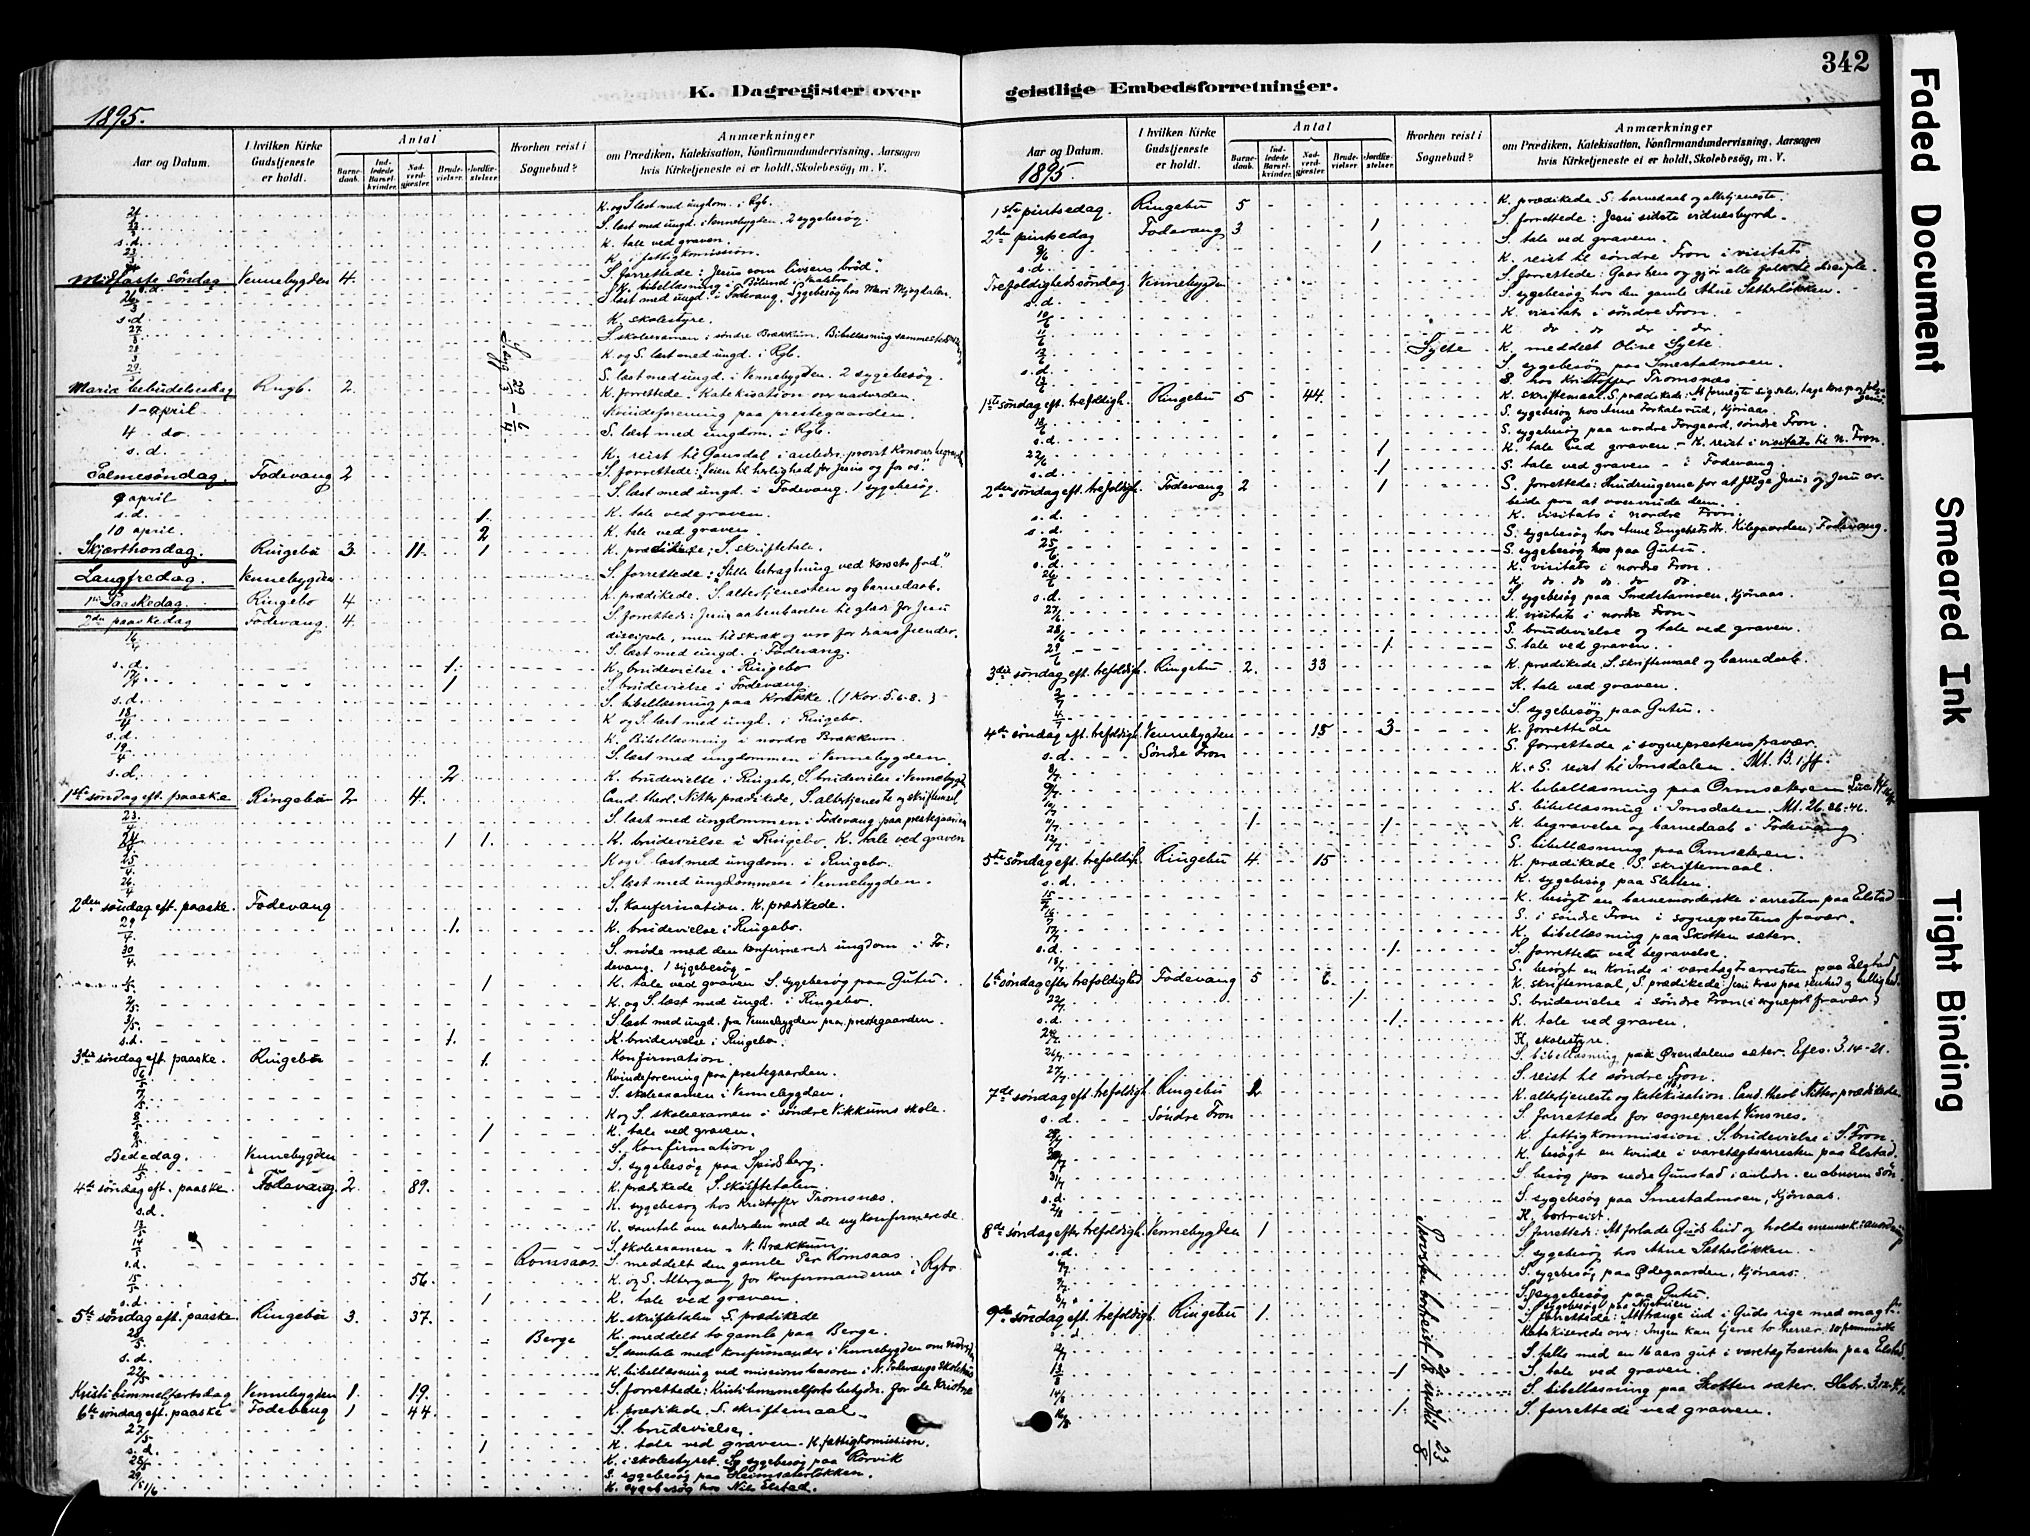 342
K. Dagregister over
geistlige Embedsforretninger.
1895.
Aar og Datum.
I hvilken Kirke Gudstjeneste er holdt.
Antal
Barnedaab.
Indledede Barselkvinder.
Nadverdgjester
Brudevielser.
Jordfæstelser.
Hvorhen reist i Sognebud?
Anmærkninger
om Prædiken, Katekisation, Konfirmandundervisning, Aarsagen
hvis Kirketjeneste ei er holdt, Skolebesøg, m. V.
K. og S. læst med ungdom. i Rgb.
S. læst med ungd. i Vennebygden. 2 sygebesøg.
s.d. K. tale ved graven.
K. i fattigkomission.
Midfaste søndag Vennebygden 4. S. forrettede: Jesus som livsens brød.
s.d.
26/3 S. læst med ungd. i Fodevang. Sygebesøg hos Mari
s.d. K. skolestyre.
27/3 S. skoleexamen i søndre Brækkum. Bibellæsning sammesteds
28/3 K. og S. læst med ungd. i Rgb.
29/3 S. læst med ungd. i Vennebygden. 2 sygebesøg.
Maria bebudelsesdag Rngb. 2. K. forrettede. Katekisation over nadverden.
1 april Kvindeforening paa prestegaarden.
4 do S. læst med ungdom. i Rgb.
s.d. K. reist til Gausdal i anledn. provst Konows begravelse
Palmesøndag. Fodevang 2 S. forrettede: Veien til herlighed for Jesus og for os".
9 april S. læst med ungd. i Fodevang. 1 sygebesøg.
s.d. 1. K. tale ved graven.
10 april. 2 K. tale ved graven.
Skjærthorsdag. Ringebu 3. 11. 1 K. prædikede; S. skriftetale.
Langfredag. Vennebygden S. forrettede: "Stille betragtning ved korsets fod".
1ste Paaskedag. Ringebo 4 K. prædikede. S. altertjenesten og barnedaab.
2den paaskedag Fodevang. 4. S. forrettede: Jesu aabenbarelse til glæde for Jesu
disciple, men til skræk og uro for hans fiender.
16/4 S. læst med ungd. i Fodevang.
s.d. 1. K. brudevielse i Ringebo
17/4 1 S. brudevielse i Fodevang
s.d. S. bibellæsning paa Kraake. (1 Kor. 5. 6-8.)
18/4 K og S. læst med ungd. i Ringebo.
s.d. K. Bibellæsning i nordre Brækkum.
19/4 S. læst med ungdommen i Vennebygden.
s.d. 2. K. brudevielse i Ringebo, S. brudevielse i Vennebygd.
1ste søndag eft. paaske Ringebu 2 4. Cand. theol. Nitter prædikede, S. altertjeneste og skriftemaal
23/4 S. læst med ungdommen i Fodevang paa prestegaarden
24/4 1 1. K. brudevielse i Ringebo. K. tale ved graven
25/4 K og S. læst med ungdom. i Ringebo.
26/4 S. læst med ungdommen i Vennebygden.
2den søndag eft. paaske. Fodevang S. konfirmation. K. prædikede.
29/4 1. K. brudevielse i Ringebo.
30/4 S. møde med den konfirmerede ungdom i Fo-
devang. 1 sygebesøg
1 K. tale ved graven S. sygebesøg paa Gutu.
2/5 K. og S. læst med ungd. i Ringebo.
3/5 S. læst med ungd. fra Vennebygden paa prestegaarden.
s.d. 1. K. brudevielse i Ringebo.
3die søndag eft. paaske. Ringebu 1. Konfirmation.
6/5 Kvindeforening paa prestegaarden.
7/5 S. skoleexamen i Vennebygden.
8/5 K og S. skoleexamen i søndre Vekkums skole.
9/5 1 K. tale ved graven.
Bededag. Vennebygden S. Konfirmation
S. sygebesøg paa Spidsberg.
4de søndag eft. paaske. Fodevang 2. 89. K. prædikede S. skriftetalen.
s.d. K. sygebesøg hos Kristoffer Tromsnæs.
13/5 K. samtale om nadverden med de nykonfirmerede.
14/5 S. skoleexamen N. Brækkum
s.d. Romsaas S. meddelt den gamle Per Romsaas.
15/5 56. K. og S. Altergang for konfirmanderne i Rgbo
s.d. 1 K. tale ved graven.
5te søndag eft. paaske Ringebu 3. 37. K. skriftetalen S. prædikede
Berge K. meddelt to gamle paa Berge.
s.d. S. samtale med konfirmander i Vennebygden om nadverden
22/5 K. bibellæsning ved missionsbasaren i N. Fodevangs skolehus
Kristi himmelfartsdag Vennebygden 1. 19. S. forrettede: Kristi himmelfarts betydn. for de kristne
6te søndag eft. paaske Fodevang 1 44. K. prædikede. S. skriftemaal.
27/5 S. brudevielse.
s.d. 1 K. tale ved graven. K. fattigkomission.
28/5 K. i skolestyret. S. sygebesøg paa Rørvik
29/5 S. sygebesøg paa Heimsæterløkken.
1/6 K. sygebesøg hos Nils Elstad.
Aar og Datum.
1895.
I hvilken Kirke Gudstjeneste er holdt.
Antal
Barnedaab.
Indledede Barselkvinder.
Nadverdgjester
Brudevielser.
Jordfæstelser.
Hvorhen reist i Sognebud?
Anmærkninger
om Prædiken, Katekisation, Konfirmandundervisning, Aarsagen
hvis Kirketjeneste ei er holdt, Skolebesøg, m. V.
1ste pintsedag. Ringebu 5 K. prædikede. S. barnedaab og altertjeneste.
2den pintsedag Fodevang 3 1 S. forrettede: Jesu sidste vidnesbyrd.
1 S. tale ved graven.
s.d. K. reist til søndre Fron i visitats
Trefoldighedssøndag Vennebygden S. forrettede: Gaar hen og gjør alle folk til disciple.
s.d. S. sygebesøg hos den gamle Ahne Sætherløkken.
10/6 K. visitats i søndre Fron.
11/6 K do do do do
12/6 Sylte K. meddelt Oline Sylte.
s.d. S. sygebesøg paa Smestadmoen.
13/6 S. hos Kristoffer Tromsnæs.
1ste søndag eft. trefoldigh. Ringebu 5 44. K. skriftemaal S. prædikede: At fornegte sig selv, tage kors op og følge Jesus.
S. sygebesøg hos Anne Forkalsrud, Kjønaas.
s.d. S. sygebesøg paa nordre Forgaard, søndre Fron.
22/6 1 K. tale ved graven. K. reist i visitats til n. Fron.
s.d. 1 S. tale ved graven i Fodevang.
2den søndag eft. trefoldigh. Fodevang 2 1 S. forrettede: Hindringerne for at følge Jesus og Jesu ar-
beide paa at overvinde dem.
s.d. K. visitats i nordre Fron.
s.d. S. sygebesøg hos Anne Kilegaarden, Fodevang.
25/6 S. sygebesøg paa Gutu.
s.d. K. visitats i nordre Fron.
26/6 K. do. do. do do.
s.d. S. sygebesøg paa Smedstamoen, Kjønaas.
27/6 K. visitats i nordre Fron.
28/6 S. brudevielse og tale ved graven.
29/6 1. S. tale ved graven.
3die søndag eft. trefoldigh. Ringebu 2. 33 K. prædikede. S. skriftemaal og barnedaab.
2/7 K. tale ved graven.
4/7 S. sygebesøg paa Gutu.
4de søndag eft. trefoldigh. Vennebygden 15 3. K. forrettede
s.d. Søndre Fron S. forrettede i sogneprestens fravær.
8/7 K. + S. reist til Imsdalen. Mt. 13. 1 ff.
9/7 K. bibellæsning paa Ormsæteren Luc. 14.
10/7 S. bibellæsning i Imsdalen. Mt. 26. 36-46.
11/7 1 1 K. begravelse og barnedaab i Fodevang
12/7 S. bibellæsning paa Ormsæteren.
5te søndag eft. trefoldigh. Ringebu 4. 15 K. prædikede S. skriftemaal.
s.d. K. sygebesøg paa Sletten.
15/7 K. besøgt en barnemorderske i arresten paa Elstad
16/7 S. i søndre Fron i sogneprestens fravær.
17/7 K. bibellæsning paa Skotten sæter.
s.d. 1 S. forrettede ved begravelse.
18/7 S. besøgt en kvinde i varetægtsarresten paa Elstad
6te søndag efter trefoldighed Fodevang 5 6. K. skriftemaal, S. prædikede: Jesu krav paa renhed og hellighed.
22/7 1 S. brudevielse i søndre Fron (i sognepr. fravær)
s.d. 1. K. tale ved graven.
24/7 K. skolestyre.
26/7 S. bibellæsning paa Ørendalens sæter. Efes. 3. 14-21.
27/7 S. reist til søndre Fron.
7de søndag eft. trefoldigh. Ringebu 2 K. altertjeneste og katekisation. Cand. theol. Nitter prædikede.
s.d. Søndre Fron S. forrettede for sogneprest Vinsnes.
29/7 K. fattigkommission. S. brudevielse i S. Fron.
30/7 K. besøgt en kvinde i varetægtsarresten paa Elstad.
31/7 S. besøg paa nedre Gunstad i anledn. en abnorm søn.
s.d. S. sygebesøg paa Smestadmoen, Kjønaas.
2/8 K. bortreist.
8de søndag efter trefoldigh. Vennebygden 1 S. forrettede: At forlade Guds bud og holde menneskeanordning
s.d. S. sygebesøg hos Ahne Sætherløkken.
S. sygebesøg paa Ødegaarden, Kjønaas.
S. sygebesøg paa Gutu.
9de søndag eft. trefoldigh. Ringebu 1. S. forrettede: At trænge ind i Guds rige med magt.
Katekiserede over: Ingen kan tjene to herrer.
S. talte med en 16 aars gut i varetægtsarresten paa Elstad.
13/8 1 S. tale ved graven.
14/8 S. bibellæsning paa Skotten sæter. Hebr. 3.
16/8 1. S. forrettede ved graven.
Provsten bortreist 2/8 indtil 23/8
Faded Document
Smeared Ink
Tight Binding